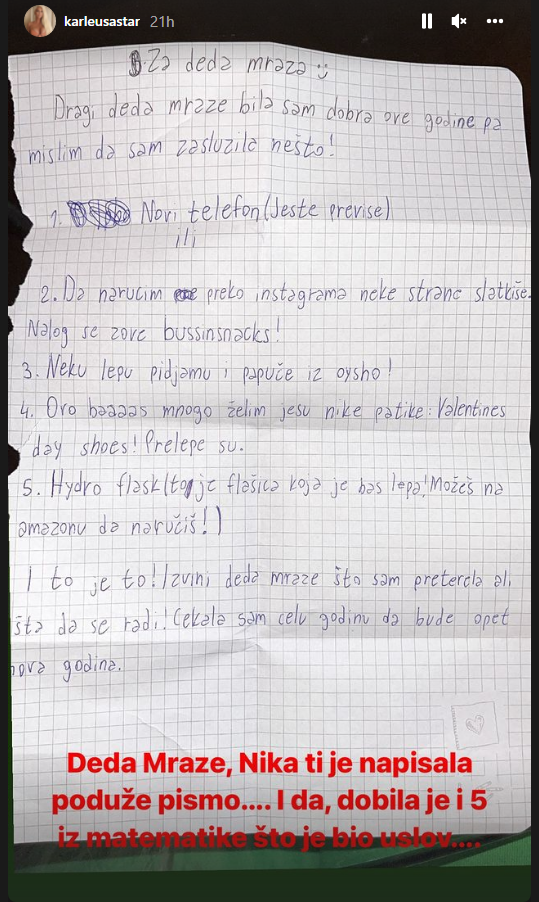 karleusastar 21h
Za deda mraza
Dragi deda mraze bila sam dobra ove godine pa
mislim da sam zasluzila nešto!
1. Novi telefon(Jeste previse)
ili
2. Da narucim preko instagrama neke strane slatkiše.
Nalog se zove bussinsnacks!
3. Neku lepu pidjamu i papuče iz oysho!
4. Ovo baaaas mnogo želim jesu nike patike: Valentines
day shoes! Prelepe su.
5. Hydro flask(to je flašica koja je bas lepa! Možeš na
amazonu da naručiš!)
I to je to! Izvini deda mraze što sam preterala ali
šta da se radi! Cekala sam celu godinu da bude opet
nova godina.
Deda Mraze, Nika ti je napisala
poduže pismo.... I da, dobila je i 5
iz matematike što je bio uslov....